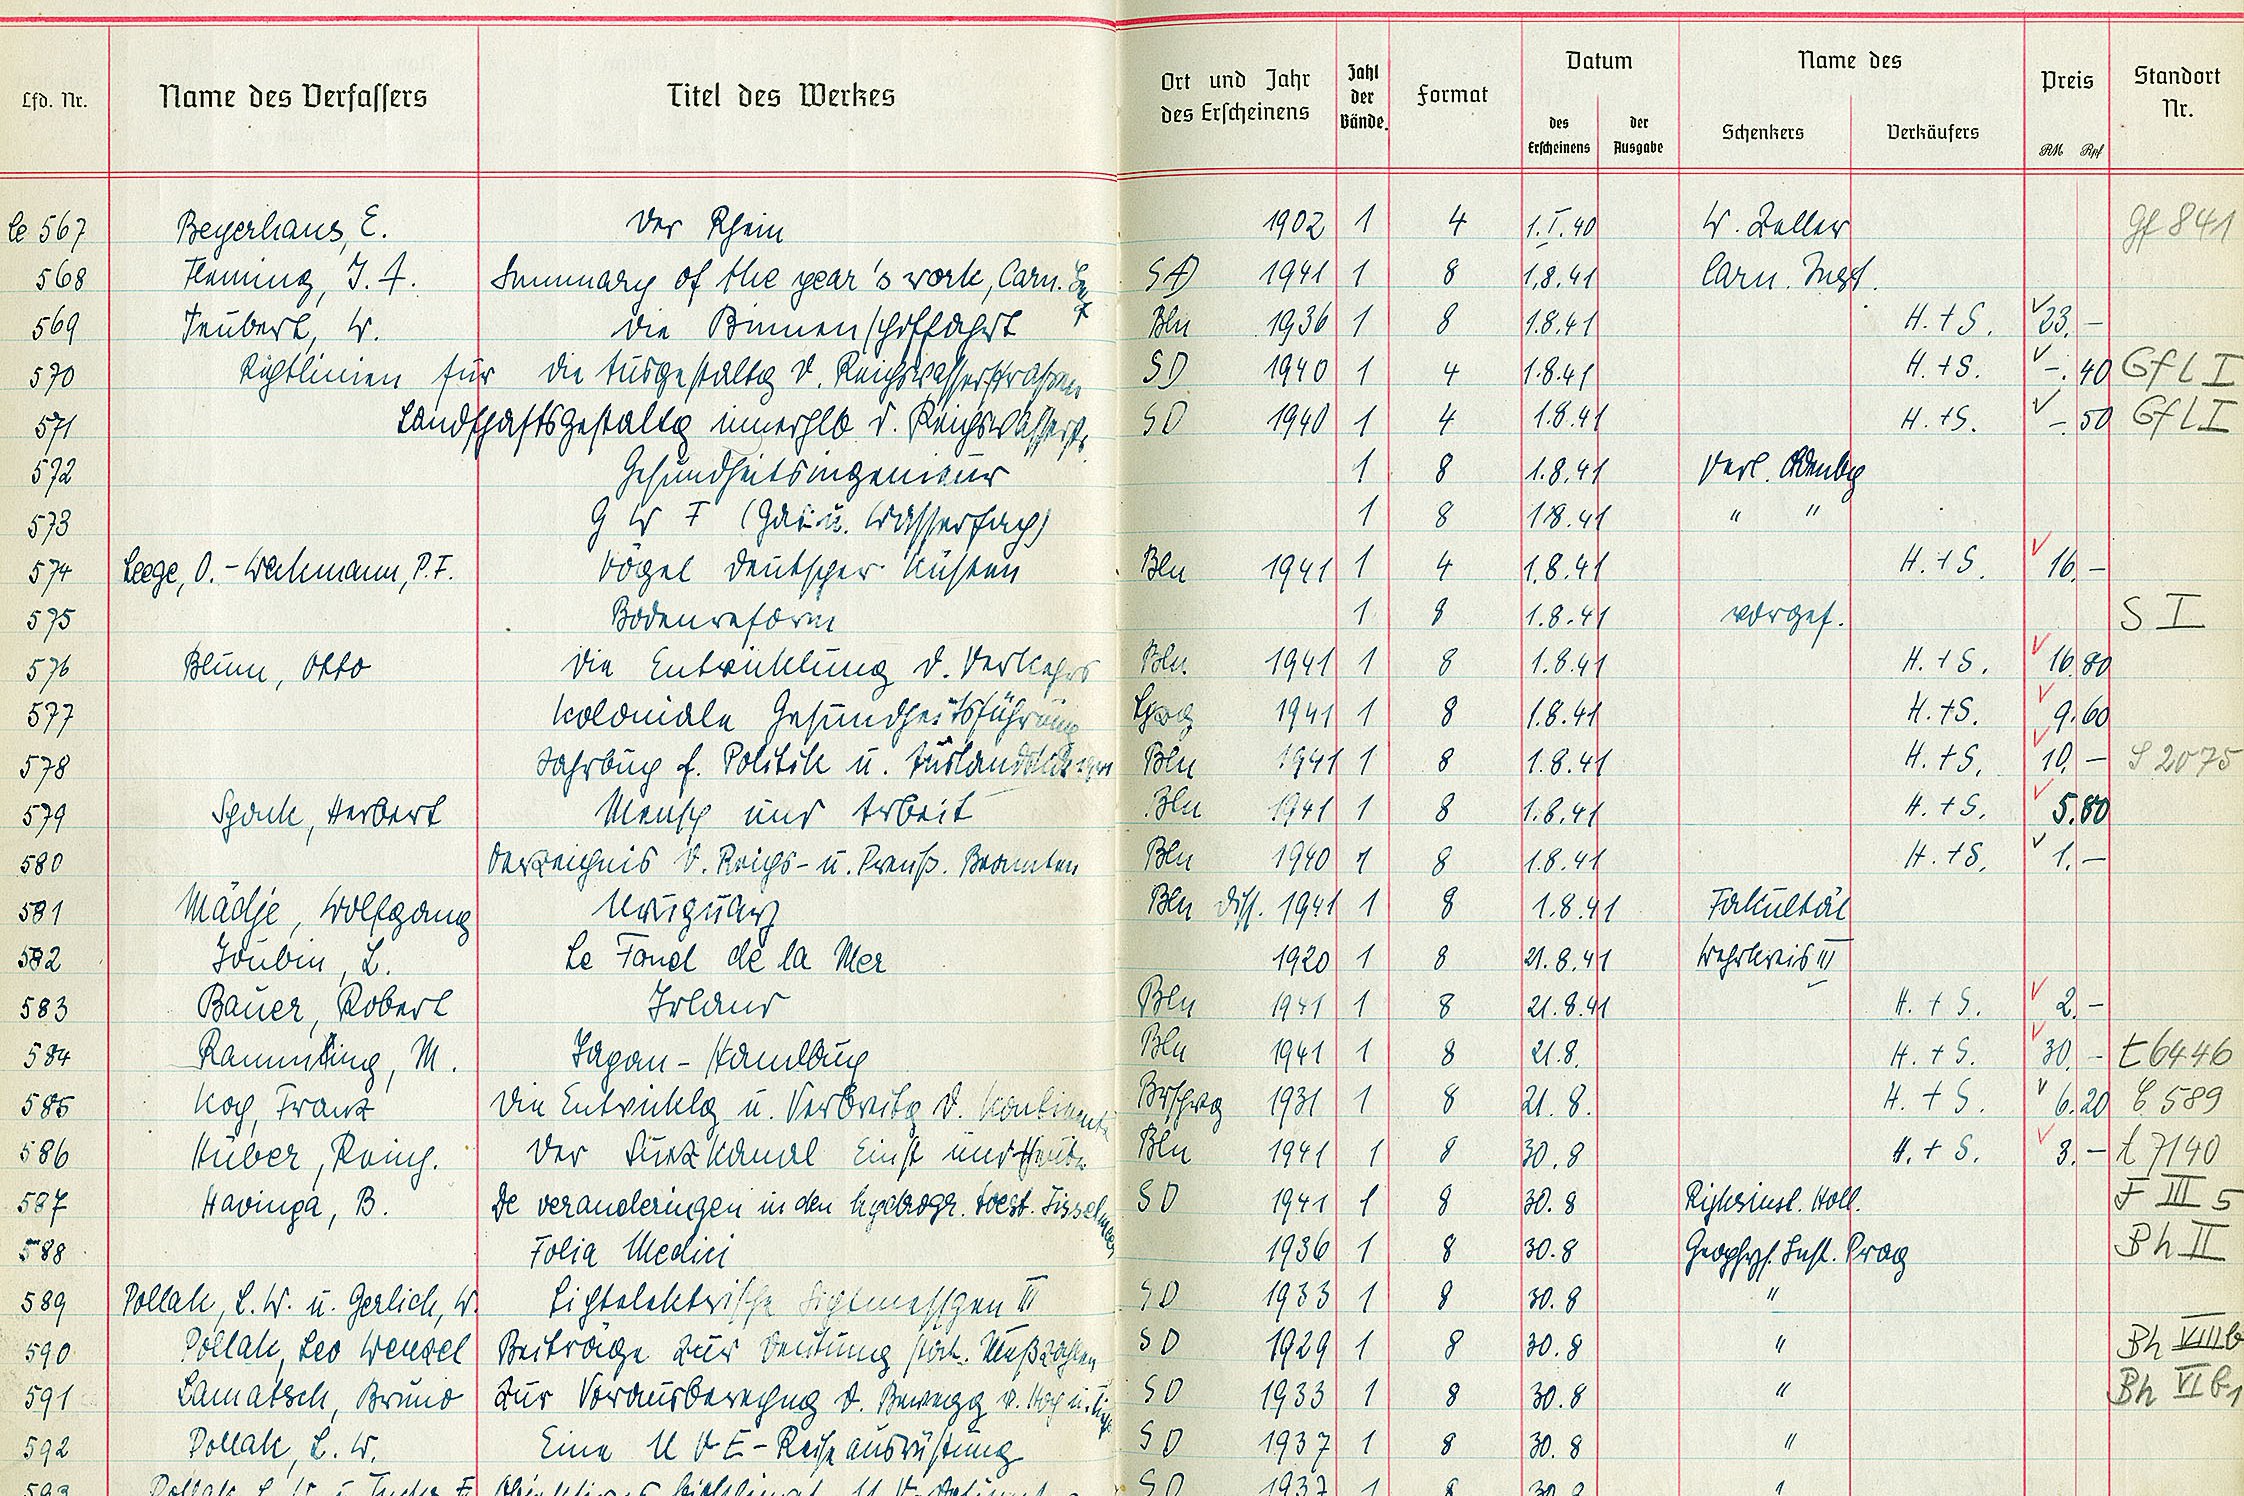 Lfd. Nr. Name des Verfassers Titel des Werkes Ort und Jahr des Erscheinens Zahl der Bände. Format Datum des Erscheinens der Ausgabe Name des Schenkers Verkäufers Preis RM Rpf Standort Nr.
567 Beyerhaus, E. Der Rhein 1902 1 4 1.I.40 W. Zeller Gf 841
568 Fleming, J. A. Summary of the year's work, Carn. Inst SD 1941 1 8 1.8.41 Carn. Inst.
569 Teubert, W. Die Binnenschiffahrt Bln 1936 1 8 1.8.41 H. + S. 23. –
570 Richtlinien für die Ausgestaltg d. Reichswasserstrassen SD 1940 1 4 1.8.41 H. + S. –. 40 Gf L I
571 Landschaftsgestaltg innerhlb d. Reichswasserstr. SD 1940 1 4 1.8.41 H. + S. –. 50 Gf L I
572 Gesundheitsingenieur 1 8 1.8.41 Verl. Oldenbg
573 G W F (Gas u. Wasserfach) 1 8 1.8.41 " "
574 Leege, O. – Weckmann, P. F. Vögel deutscher Küsten Bln 1941 1 4 1.8.41 H. + S. 16. –
575 Bodenreform 1 8 1.8.41 vorgef. S I
576 Blum, Otto Die Entwicklung d. Verkehrs Bln. 1941 1 8 1.8.41 H. + S. 16.80
577 Koloniale Gesundheitsführung Lpzg 1941 1 8 1.8.41 H. + S. 9.60
578 Jahrbuch f. Politik u. Bln 1941 1 8 1.8.41 H. + S. 10. – S 2075
579 Schack, Herbert Mensch und Arbeit Bln 1941 1 8 1.8.41 H. + S. 5.80
580 Verzeichnis d. Reichs- u. Preuß. Beamten Bln 1940 1 8 1.8.41 H. + S. 1. –
581 Mädje, Wolfgang Uruguay Bln Diss. 1941 1 8 1.8.41 Fakultät
582 Joubin, L. Le Fond de la Mer 1920 1 8 21.8.41 Wehrkreis III
583 Bauer, Robert Irland Bln 1941 1 8 21.8.41 H. + S. 2. –
584 Ramming, M. Japan - Handbuch Bln 1941 1 8 21.8. H. + S. 30. – t 6446
585 Koch, Franz Die Entwicklg u. Verbreitg d. Kontinente Brschwg 1931 1 8 21. 8. H. + S. 6.20 C 589
586 Huber, Reinh. Der Suezkanal Einst und Heute Bln 1941 1 8 30. 8 H. + S. 3. – t 7140
587 Havinga, B. De veranderingen in den hydrogr. toest. Ijsselmeer SD 1941 1 8 30. 8 Rijksinst. Holl. F III 5
588 Folia Medici 1936 1 8 30. 8 Geophys. Inst. Prag Bh II
589 Pollak, L. W. u. Gerlich, W. Lichtelektrische Lichtmessgen III SD 1933 1 8 30. 8 "
590 Pollak, Leo Wenzel Beiträge zur Deutung stat. Maßzahlen SD 1929 1 8 30. 8 " Bh VIII b
591 Lamatsch, Bruno Zur Vorausberechng d. Bewegg v. Hoch u. Tief SD 1933 1 8 30. 8 " Bh VI b 1
592 Pollak, L. W. Eine U V E - Reiseausrüstung SD 1937 1 8 30. 8 "
593 Pollak SD 1937 1 8 30. 8